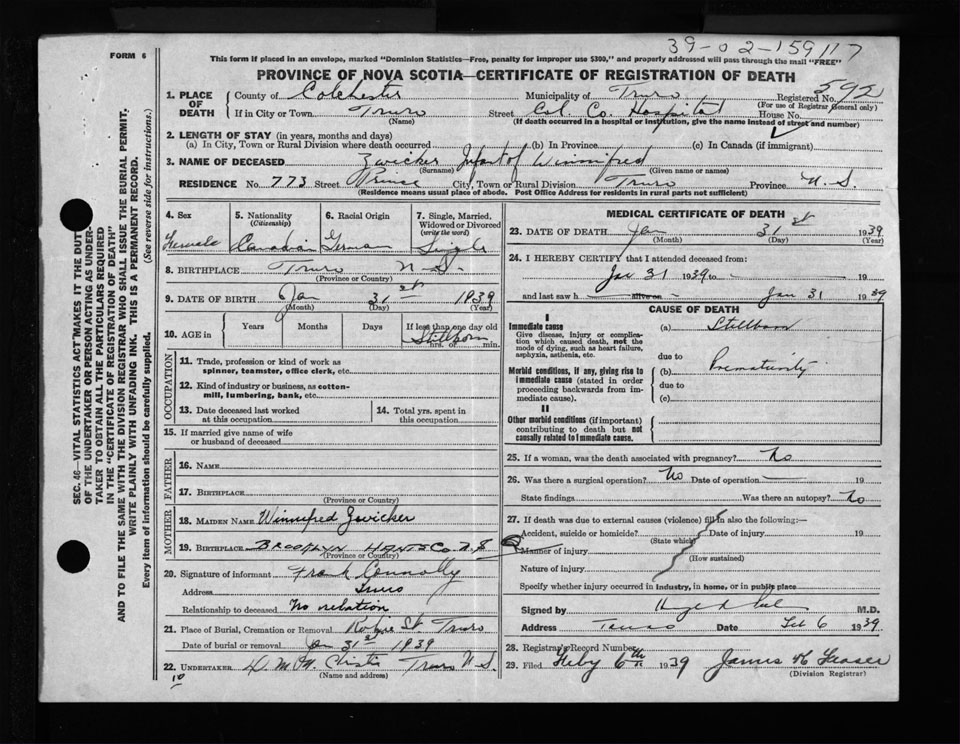 39-02-159117
FORM 6
This form if placed in an envelope, marked "Dominion Statistics—Free, penalty for improper use $300," and properly addressed will pass through the mail "FREE"
PROVINCE OF NOVA SCOTIA—CERTIFICATE OF REGISTRATION OF DEATH
592
1. PLACE OF DEATH
County of Colchester Municipality of Truro Registered No.
(For use of Registrar General only)
If in City or Town Truro Street Col. Co. Hospital House No.
(Name) (If death occurred in a hospital or institution, give the name instead of street and number)
2. LENGTH OF STAY (in years, months and days)
(a) In City, Town or Rural Division where death occurred (b) In Province (c) In Canada (if immigrant)
3. NAME OF DECEASED Zwicker Infant of Winnifred
(Surname) (Given name or names)
RESIDENCE No. 773 Street Prince City, Town or Rural Division Truro Province N.S.
(Residence means usual place of abode. Post Office Address for residents in rural parts not sufficient)
4. Sex
Female
5. Nationality
(Citizenship)
Canadian
6. Racial Origin
German
7. Single, Married, Widowed or Divorced
(write the word)
Single
8. BIRTHPLACE Truro N.S.
(Province or Country)
9. DATE OF BIRTH Jan 31st 1939
(Month) (Day) (Year)
10. AGE in Years Months Days If less than one day old
Stillborn
hrs. or min.
OCCUPATION
11. Trade, profession or kind of work as
spinner, teamster, office clerk, etc.
12. Kind of industry or business, as cotton-
mill, lumbering, bank, etc.
13. Date deceased last worked
at this occupation
14. Total yrs. spent in
this occupation
15. If married give name of wife
or husband of deceased
FATHER
16. NAME
17. BIRTHPLACE
(Province or Country)
MOTHER
18. MAIDEN NAME Winnifred Zwicker
19. BIRTHPLACE BROOKLYN HANTS CO. N.S
(Province or Country)
20. Signature of informant Frank Connolly
Address Truro
Relationship to deceased No relation
21. Place of Burial, Cremation or Removal Robie St. Truro
Date of burial or removal Jan 31st 1939
22. UNDERTAKER Truro N.S.
(Name and address)
10
MEDICAL CERTIFICATE OF DEATH
23. DATE OF DEATH Jan 31st 1939
(Month) (Day) (Year)
24. I HEREBY CERTIFY that I attended deceased from:
Jan 31 1939 to 19
and last saw h alive on Jan 31 1939
CAUSE OF DEATH
I
Immediate cause
Give disease, injury or complication which caused death, not the mode of dying, such as heart failure, asphyxia, asthenia, etc.
(a) Stillborn
due to
Morbid conditions, if any, giving rise to immediate cause (stated in order proceeding backwards from immediate cause).
(b) Prematurity
due to
(c)
II
Other morbid conditions (if important) contributing to death but not causally related to immediate cause.
25. If a woman, was the death associated with pregnancy? No
26. Was there a surgical operation? No Date of operation 19
State findings Was there an autopsy? No
27. If death was due to external causes (violence) fill in also the following:—
Accident, suicide or homicide? Date of injury 19
(State which)
Manner of injury
(How sustained)
Nature of injury
Specify whether injury occurred in industry, in home, or in public place
Signed by M.D.
Address Truro Date Feb 6 1939
28. Registrar's Record Number
29. Filed Feby 6th 1939 James H Fraser
(Division Registrar)
SEC. 46—VITAL STATISTICS ACT "MAKES IT THE DUTY
OF THE UNDERTAKER OR PERSON ACTING AS UNDER-
TAKER TO OBTAIN ALL THE PARTICULARS REQUIRED
IN THE "CERTIFICATE OF REGISTRATION OF DEATH"
AND TO FILE THE SAME WITH THE DIVISION REGISTRAR WHO SHALL ISSUE THE BURIAL PERMIT.
WRITE PLAINLY WITH UNFADING INK. THIS IS A PERMANENT RECORD.
Every item of information should be carefully supplied. (See reverse side for instructions.)